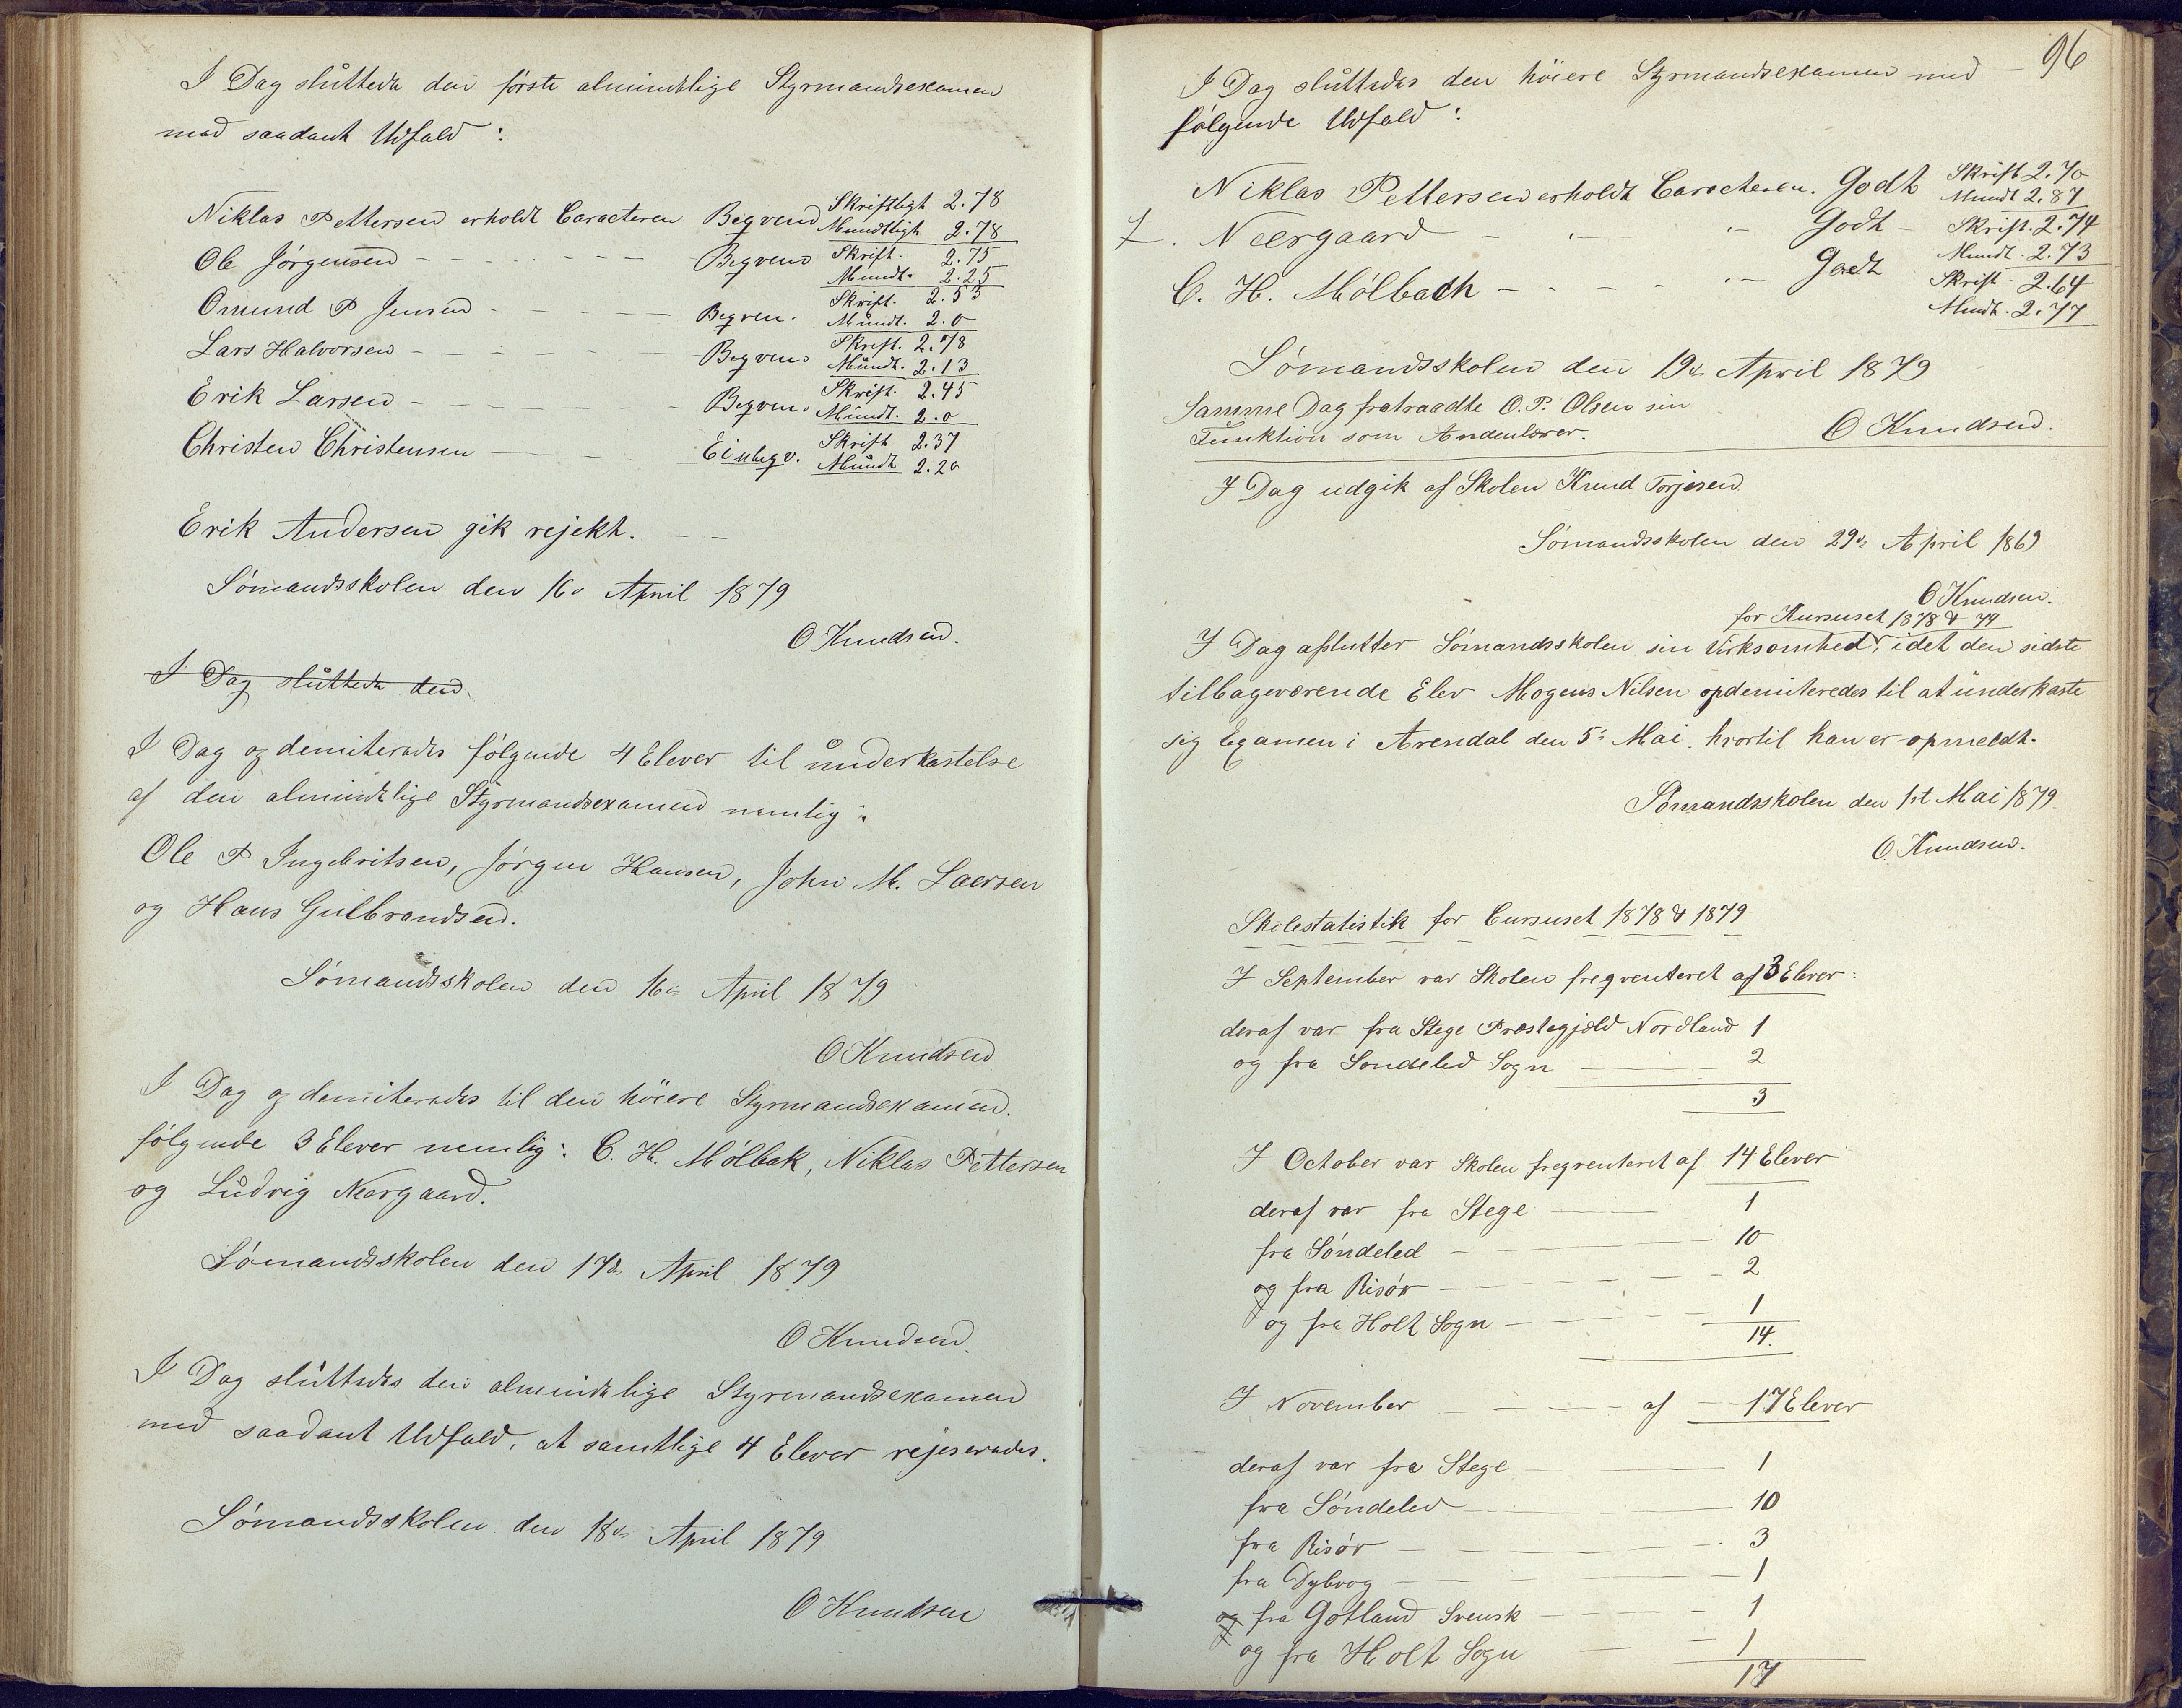 I Dag sluttede den første almindelige Styrmandsexamen
med saadant Udfald:
Niklas Pettersen erholdt Caracteren Begvem Skriftligt 2.78
Mundtligt 2.78
Ole Jørgensen - - - - - - - Begvem Skrift. 2.75
Mundt. 2.25
Omund P Jensen - - - - - Begvem. Skrift. 2.53
Mundt. 2.0
Lars Halvorsen - - - - - Begvem. Skrift. 2.78
Mundt. 2.13
Erik Larsen - - - - - - Begvem. Skrift. 2.45
Mundt. 2.0
Christen Christensen - - - Ei ubegv. Skrift 2.37
Mundt 2.20
Erik Andersen gik rejekt. - -
Sømandsskolen den 16de April 1879
O Knudsen.
I Dag sluttede den
I Dag opdemiteredes følgende 4 Elever til underkastelse
af den almindelige Styrmandsexamen nemlig:
Ole P Ingebritsen, Jørgen Hansen, John M. Laersen
og Hans Gulbrandsen.
Sømandsskolen den 16de April 1879
O Knudsen
I Dag opdemiteredes til den höiere Styrmandsexamen.
følgende 3 Elever nemlig: C. H. Mølbak, Niklas Pettersen
og Ludvig Neergaard.
Sømandsskolen den 17de April 1879
O Knudsen.
I Dag sluttedes den almindelige Styrmandsexamen
med saadant Udfald, at samtlige 4 Elever rejeseredes.
Sømandsskolen den 18de April 1879
O Knudsen
96
I Dag sluttedes den höiere Styrmandsexamen med -
følgende Udfald:
Niklas Pettersen erholdt Caracteren. Godt Skrift 2.70
Mundt 2.87
L. Neergaard - - - Godt - Skrift. 2.74
Mundt. 2.73
C. H. Mølbach - - - - - Godt Skrift - 2.64
Mundt. 2.77
Sømandsskolen den 19de April 1879
Samme Dag fratraadte O. P. Olsen sin
Funktion som Andenlærer.
O Knudsen.
I Dag udgik af Skolen Knud Torjesen
Sømandsskolen den 29de April 1869
O Knudsen.
for Kursuset 1878 & 79
I Dag aflutter Sömandsskolen sin Virksomhed, idet den sidste
tilbageværende Elev Mogens Nilsen opdemiteredes til at underkaste
sig Examen i Arendal den 5te Mai. hvortil han er opmeldt.
Sømandsskolen den 1st Mai 1879
O. Knudsen.
Skolestatistik for Cursuset 1878 & 1879
I September var Skolen freqventeret af 3 Elever:
deraf var fra Stege Præstegjæld Nordland 1
og fra Søndeled Sogn - - - 2
3
I October var Skolen freqventeret af 14 Elever
deraf var fra Stege - - 1
fra Søndeled - - - 10
og fra Risør - - - - - - 2
og fra Holt Sogn - - - - 1
14.
I November - - - - af - 17 Elever
deraf var fra Stege - - - 1
fra Søndeled - - - 10
fra Risør - - - - - 3
fra Dybvog - - - - 1
og fra Gotland Svensk - - - 1
og fra Holt Sogn - - 1
17